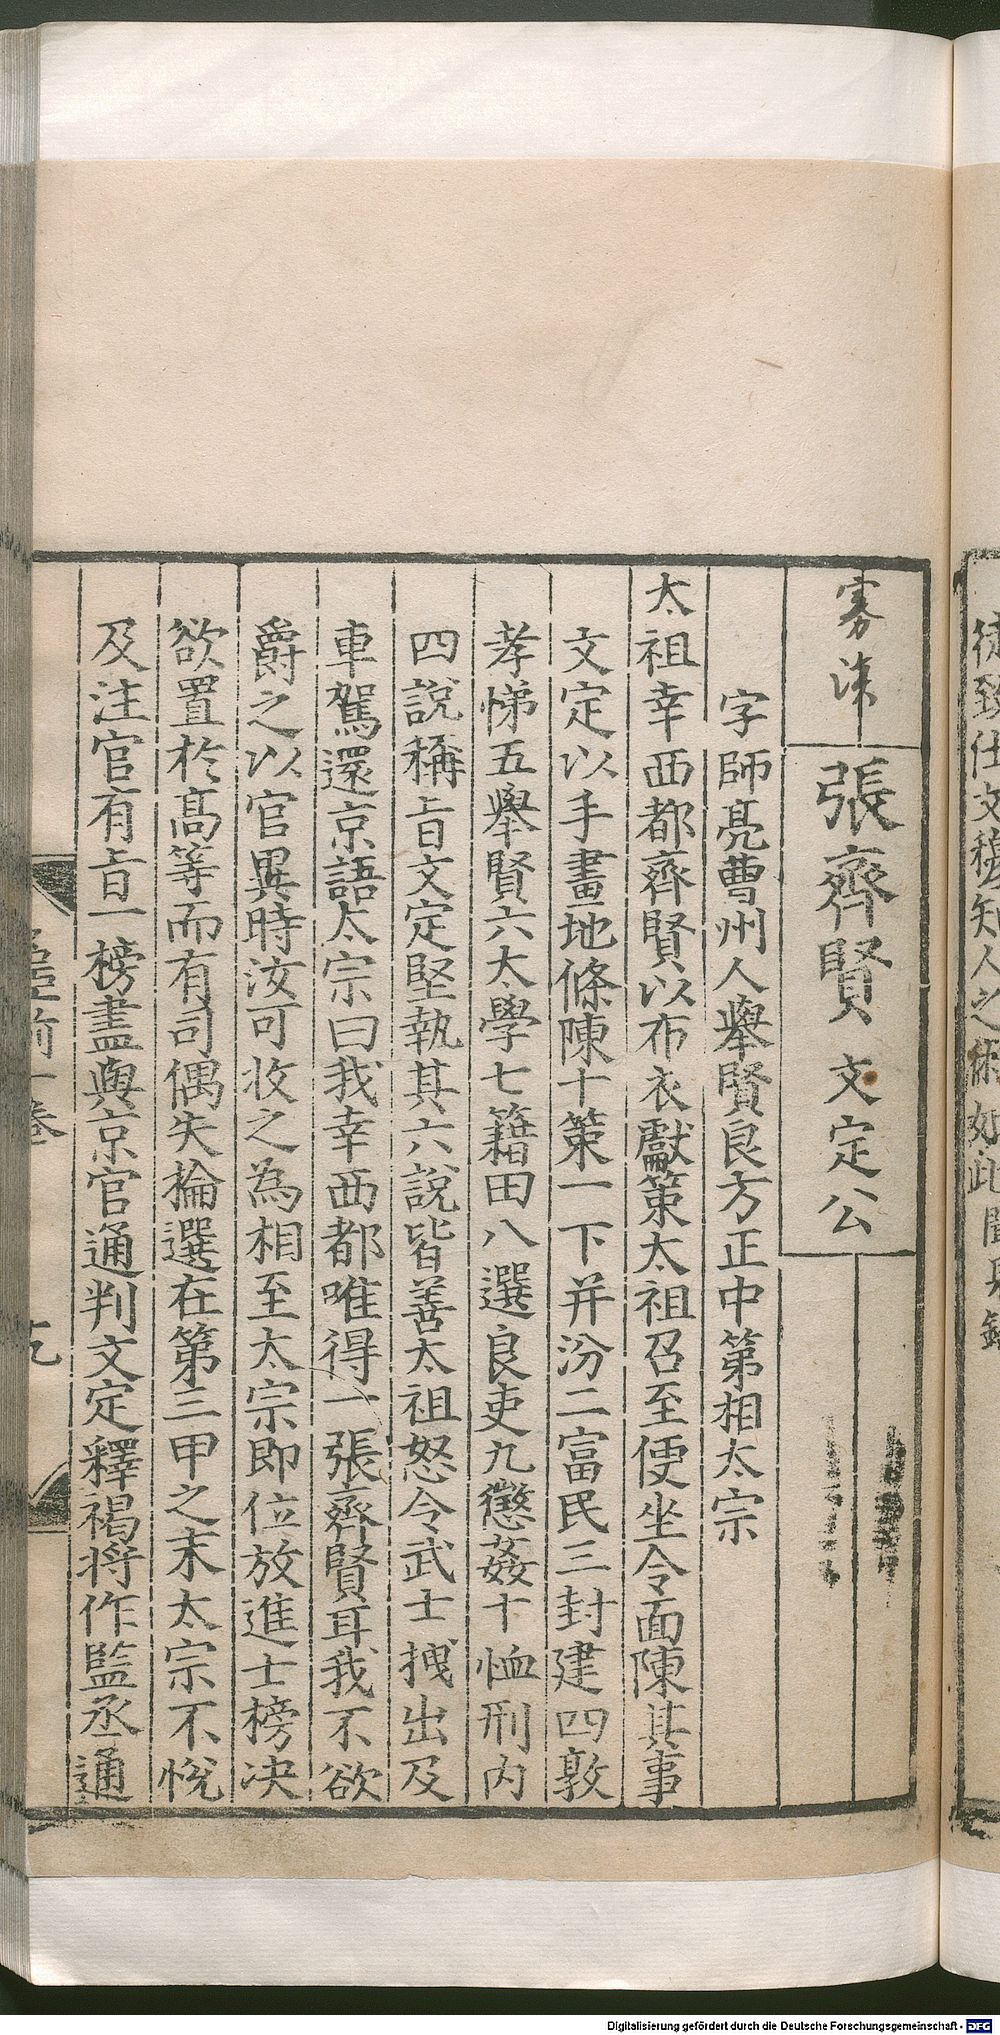 張齊賢 文定公
字師亮曹州人舉賢良方正中第相太宗
太祖幸西都齊賢以布衣獻策太祖召至便坐令面陳其事
文定以手畫地條陳十策一下并汾二富民三封建四敦
孝悌五舉賢六太學七籍田八選良吏九懲姦十恤刑内
四說稱旨文定堅執其六說皆善太祖怒令武士拽出及
車駕還京語太宗曰我幸西都唯得一張齊賢耳我不欲
爵之以官異時汝可收之為相至太宗即位放進士榜决
欲置於髙等而有司偶失掄選在第三甲之末太宗不悅
及注官有旨一榜盡與京官通判文定釋褐將作監丞通
徒致仕文穆知人之術如此
Digitalisierung gefördert durch die Deutsche Forschungsgemeinschaft - DFG